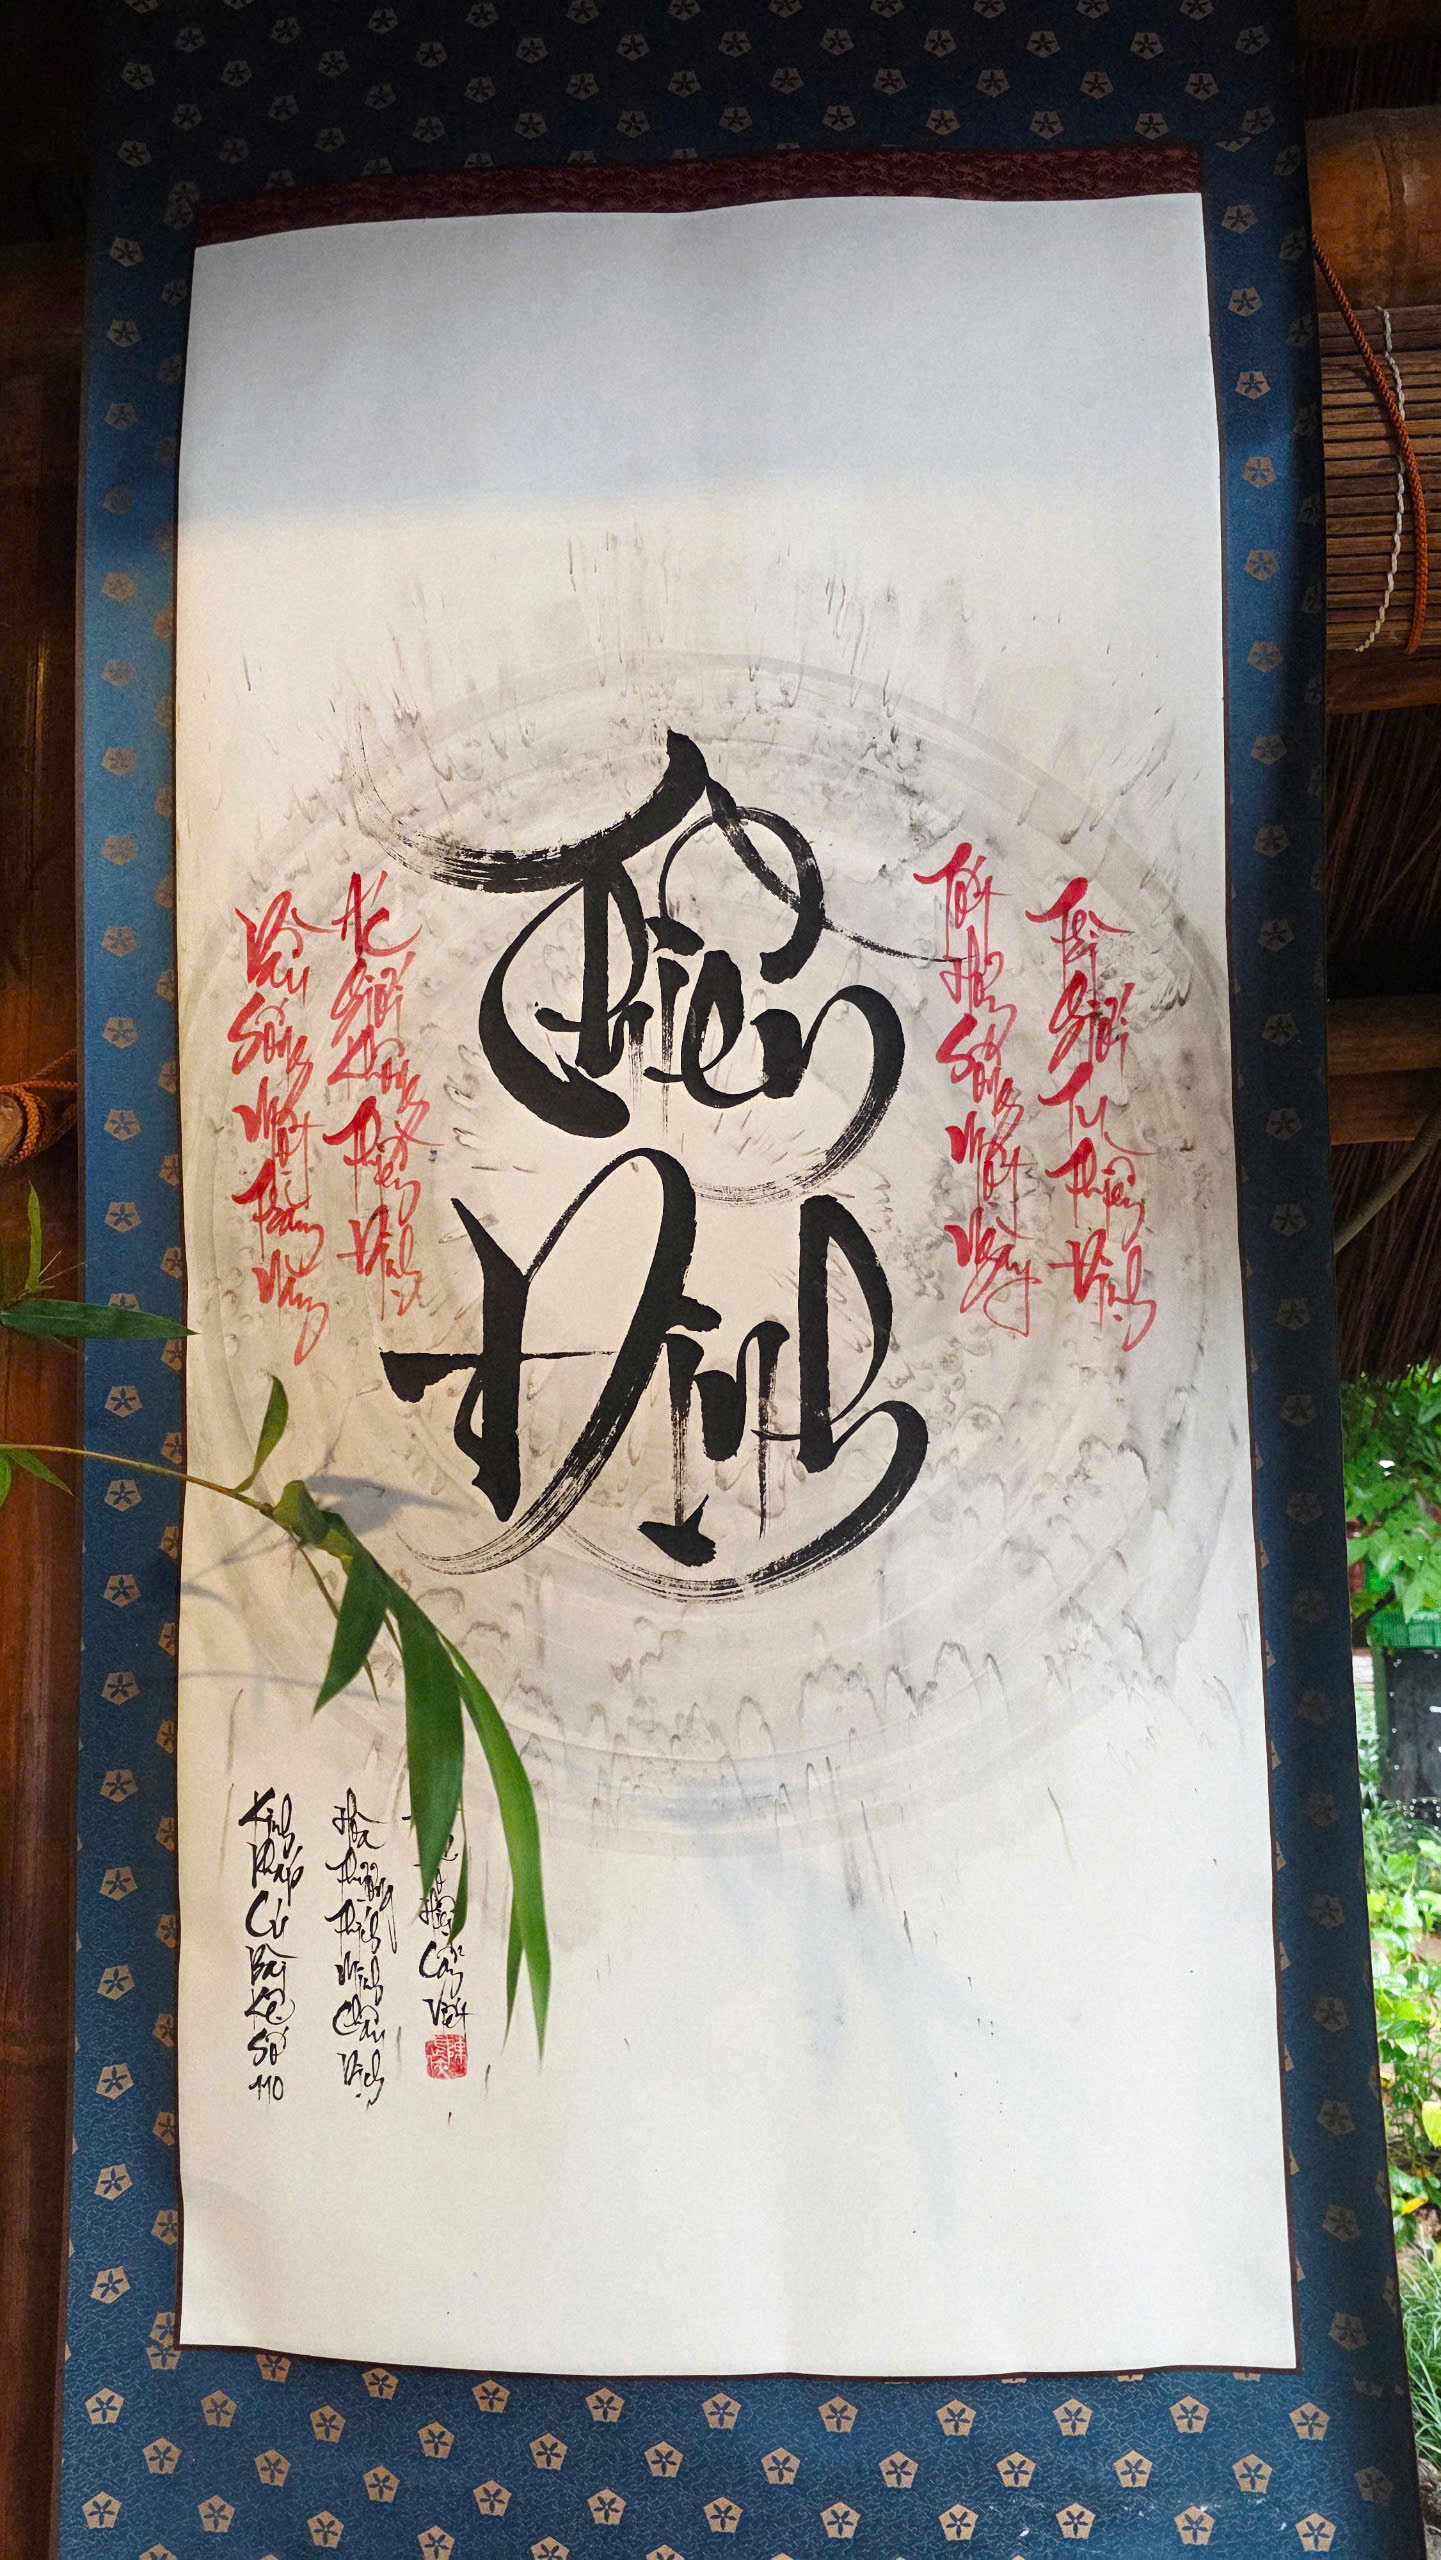 Thiền
Định
Dẫu Sống Một Trăm Năm
Ác Giới Không Thiền Định
Tốt Hơn Sống Một Ngày
Trì Giới Tu Thiền Định
Kinh Pháp Cú Bài Kệ Số 110
Hòa Thượng Thích Minh Châu Dịch
Cẩn Viết